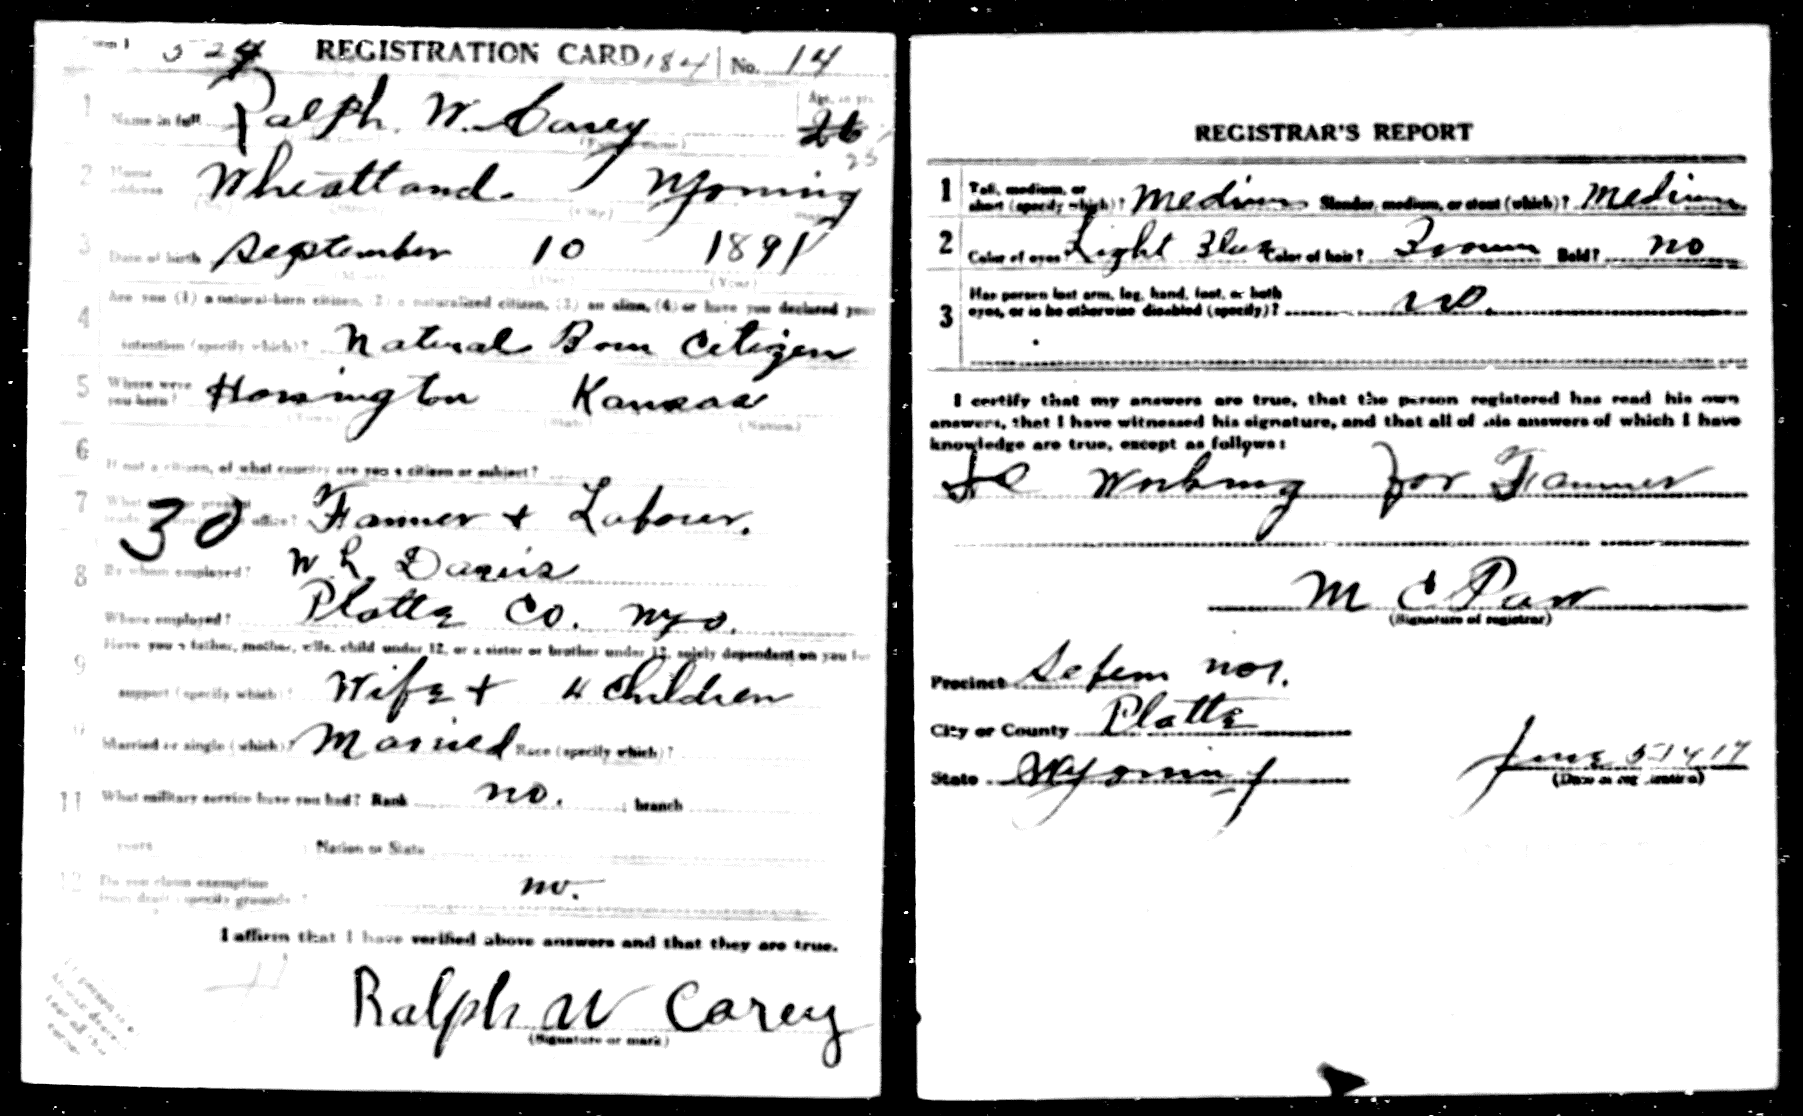 Form 1 524 REGISTRATION CARD 184 No. 14
1 Name in full Ralph W. Carey Age, in yrs. 26
25
2 Home address Wheatland. Wyoming
(No.) (Street) (City) (State)
3 Date of birth September 10 1891
(Month) (Day) (Year)
Are you (1) a natural-born citizen, (2) a naturalized citizen, (3) an alien, (4) or have you declared your
4 intention (specify which)? Natural Born Citizen
5 Where were you born? Horrington Kansas
(Town) (State) (Nation)
6 If not a citizen, of what country are you a citizen or subject?
7 What is your present trade, occupation, or office? Farmer + Labour.
30
8 By whom employed? W R Davis
Where employed? Platte Co. Wyo.
Have you a father, mother, wife, child under 12, or a sister or brother under 12, solely dependent on you for
9 support (specify which)? Wife + 4 Children
Married or single (which)? Married Race (specify which)?
11 What military service have you had? Rank no. ; branch
years ; Nation or State
12 Do you claim exemption from draft (specify grounds)? no.
I affirm that I have verified above answers and that they are true.
Ralph W Carey
(Signature or mark)
REGISTRAR'S REPORT
1 Tall, medium, or short (specify which)? Medium Slender, medium, or stout (which)? Medium
2 Color of eyes Light Blue Color of hair? Brown Bald? no
Has person lost arm, leg, hand, foot, or both
3 eyes, or is he otherwise disabled (specify)? no.
I certify that my answers are true, that the person registered has read his own
answers, that I have witnessed his signature, and that all of his answers of which I have
knowledge are true, except as follows:
Is Working for Farmer
M C Parr
(Signature of registrar)
Precinct no1.
City or County Platte
State Wyoming June 5 1917
(Date of registration)